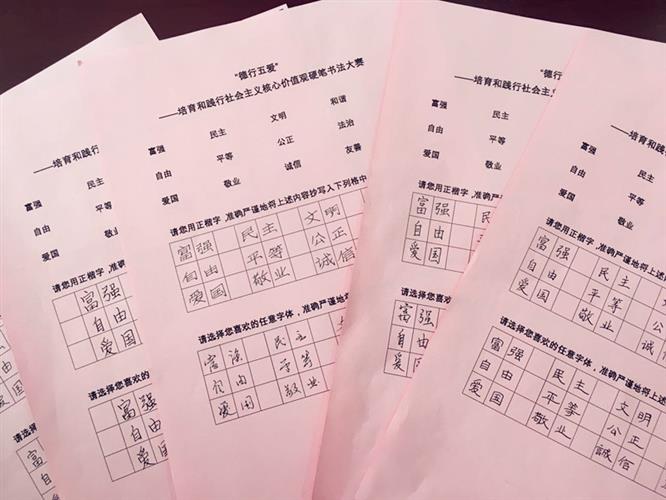 ——培育和践行
富强 民主
自由 平等
爱国 敬业
请您用正楷字，准确
富强
自由
爱国
请选择您喜欢的
富强
自由
爱国
“德行五爱”
——培育和践行社会主义核心价值观硬笔书法大赛
富强 民主 文明 和谐
自由 平等 公正 法治
爱国 敬业 诚信 友善
请您用正楷字，准确严谨地将上述内容抄写入下列格中
富强 民主 文明
自由 平等 公正
爱国 敬业 诚信
请选择您喜欢的任意字体，准确严谨地将
富强 民主
自由 平等
爱国 敬业
富强 民主
自由 平等
爱国 敬业
请您用正楷字，准确
富强 民
自由
爱国
请选择您喜欢的
富强
自由
爱国
富强 民主
自由 平等
爱国 敬业
请您用正楷字，准确严谨地将上
富强 民主 文明
自由 平等 公
爱国 敬业 诚
请选择您喜欢的任意字体，准确严谨地将上
富强 民主 文明
自由 平等 公正
爱国 敬业 誠信